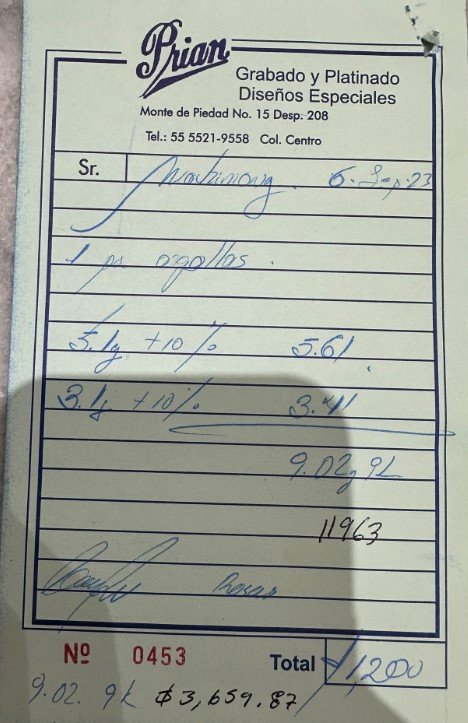 Prian
Grabado y Platinado
Diseños Especiales
Monte de Piedad No. 15 Desp. 208
Tel.: 55 5521-9558 Col. Centro
Sr. 6. Sep. 23
1 par argollas.
5.1g +10% 5.61
3.1g +10% 3.41
9.02g 9k
11963
Nº 0453 Total 1,200
9.02. 9k $3,659.87